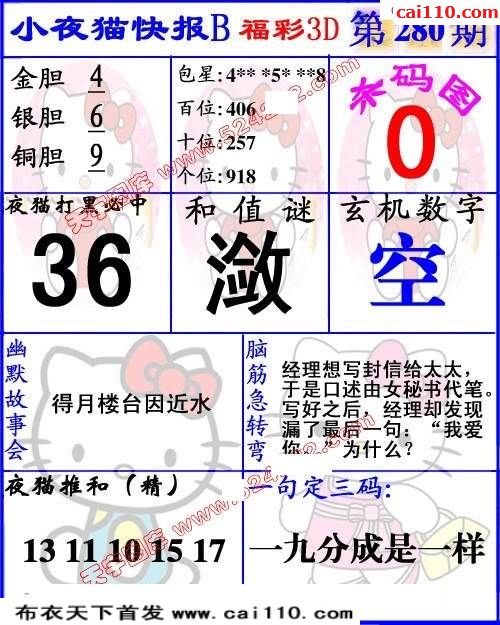 cai110.com
小夜猫快报B 福彩3D 第 280 期
金胆 4
银胆 6
铜胆 9
包星:4** *5* **8
百位:406
十位:257
个位:918
杀码图
0
夜猫打黑必中
36
和值谜
潋
玄机数字
空
幽默故事会
得月楼台因近水
脑筋急转弯
经理想写封信给太太,
于是口述由女秘书代笔。
写好之后,经理却发现
漏了最后一句:“我爱
你。”为什么?
夜猫推和(精)
13 11 10 15 17
一句定三码:
一九分成是一样
天宇图库 www.524282.com
天宇图库 www.524282.com
布衣天下首发 www.cai110.com